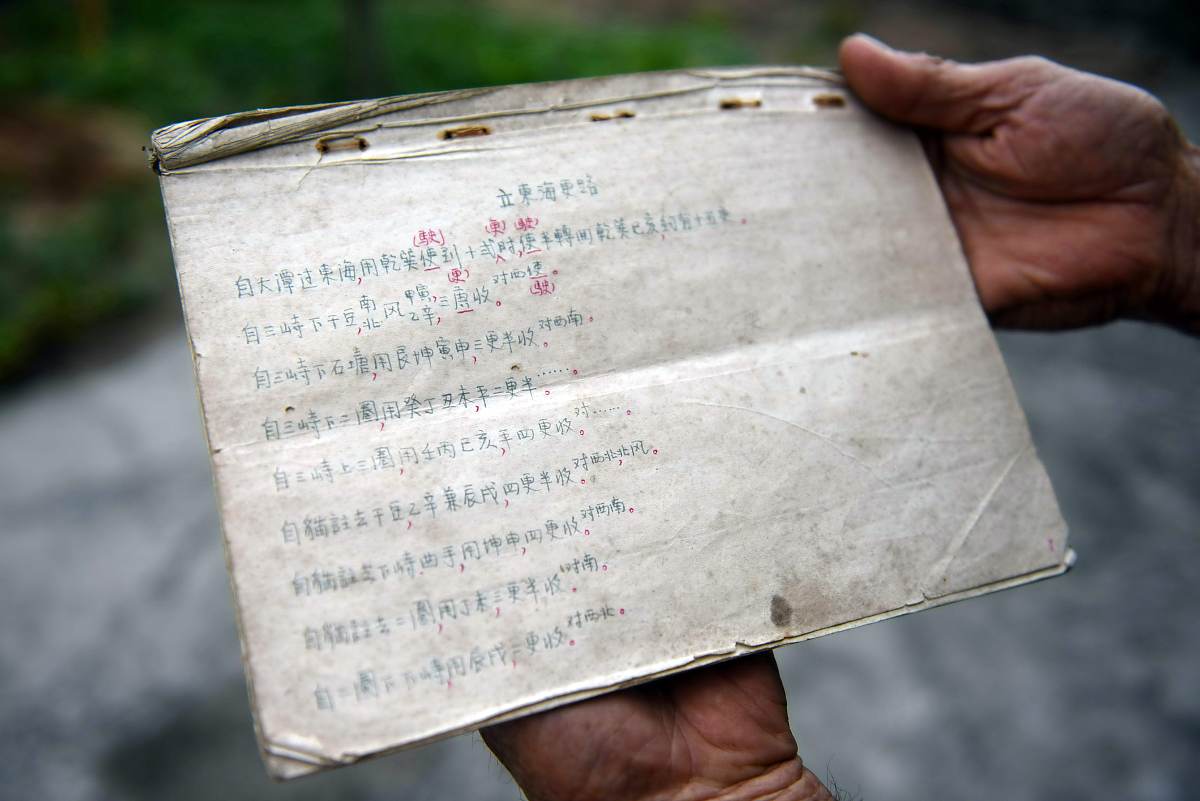 立東海更路
(駛) (更) (駛)
自大潭过東海,用乾巽使到十弍时,使半轉回乾巽已亥約有十五更。
(更) (駛)
自三峙下干豆,南北风甲寅,乙辛,三更收对西使。
自三峙下石塘,用艮坤寅申,三更半收对西南。
自三峙下二圈,用癸丁丑未,平二更半……。
自三峙上三圈,用壬丙已亥,平四更收对……。
自猫註去干豆,乙辛兼辰戌,四更半收对西北,北风。
自猫註去下峙曲手,用坤申,四更收对西南。
自猫註去二圈,用丁未,三更半收对南。
自二圈下下峙,用辰戌,三更收对西北。